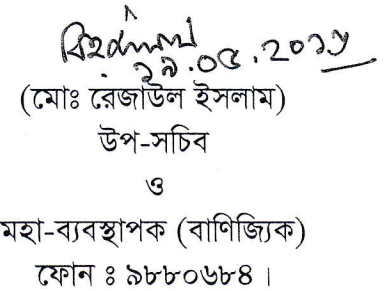 ২৯.০৫.২০১৮
(মোঃ রেজাউল ইসলাম)
উপ-সচিব
ও
মহা-ব্যবস্থাপক (বাণিজ্যিক)
ফোন ঃ ৯৮৮০৬৮৪ ।